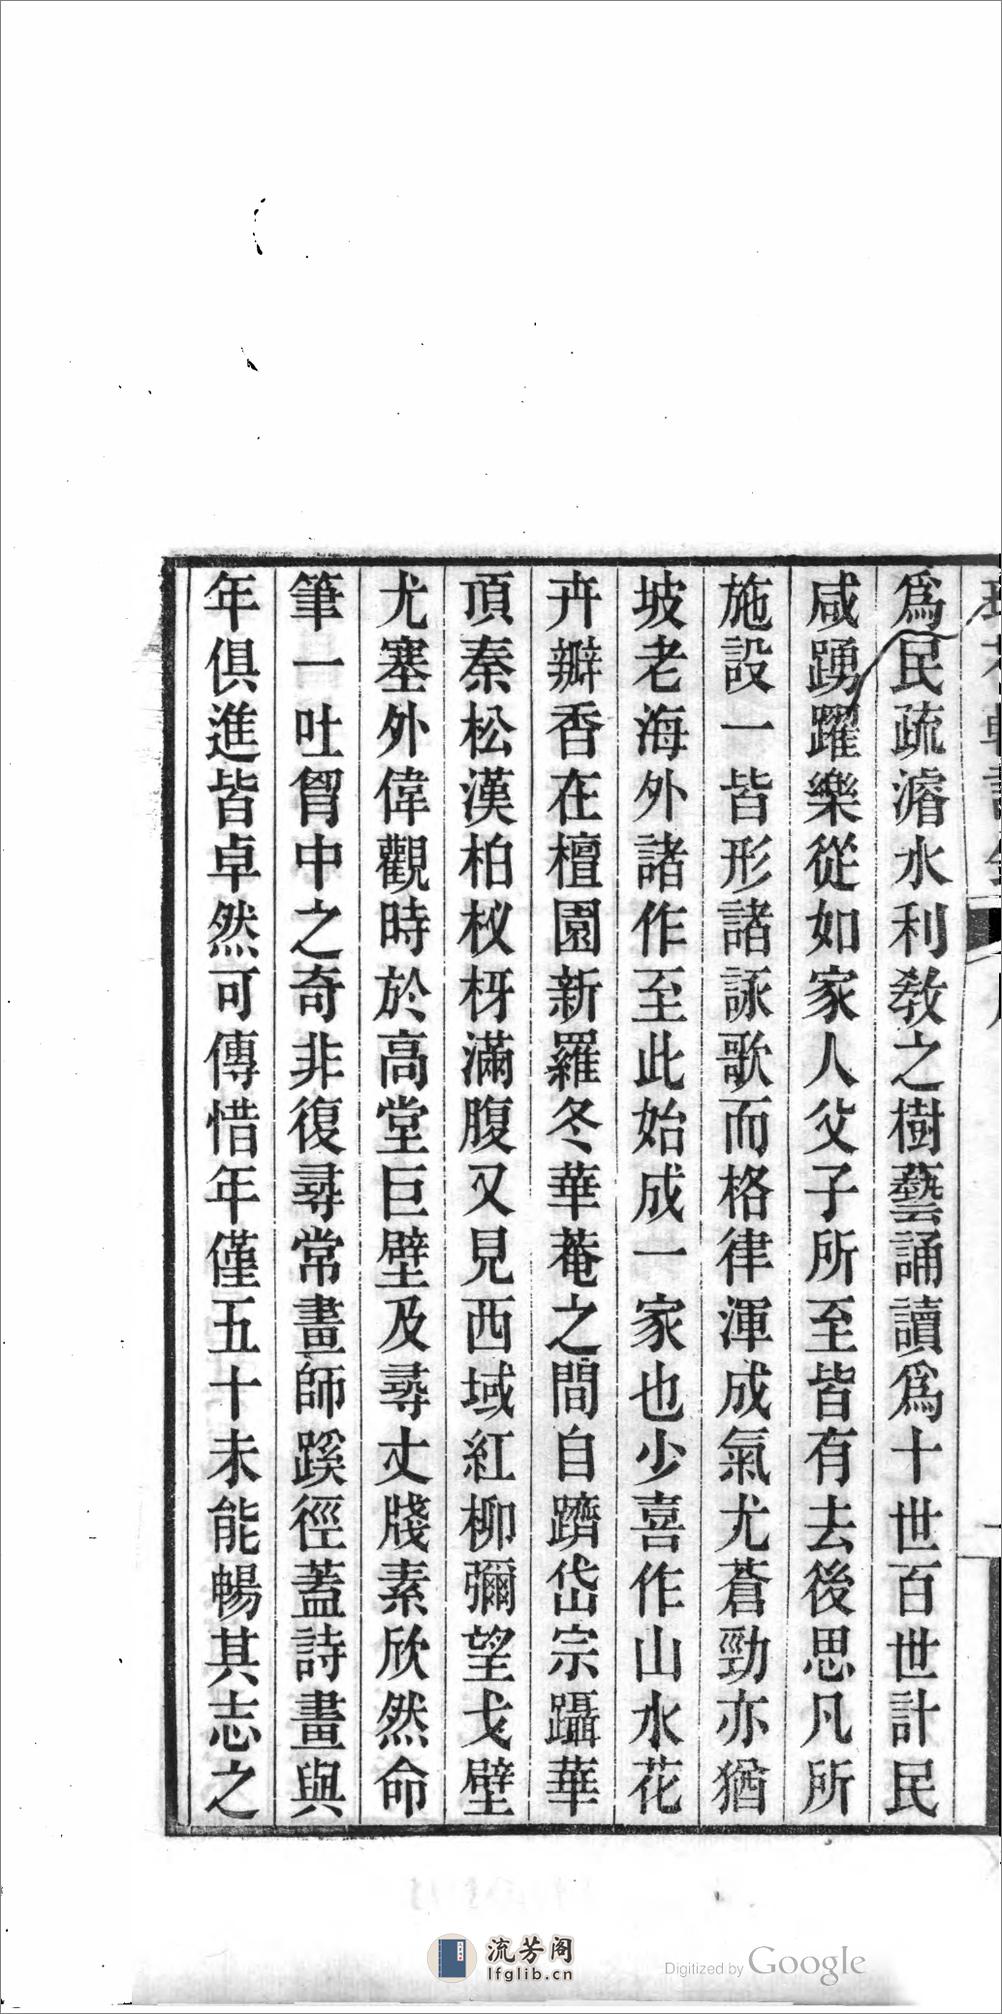 爲民疏濬水利敎之樹藝誦讀爲十世百世計民
咸踴躍樂從如家人父子所至皆有去後思凡所
施設一皆形諸詠歌而格律渾成氣尤蒼勁亦猶
坡老海外諸作至此始成一家也少喜作山水花
卉瓣香在檀園新羅冬華菴之間自躋岱宗躡華
頂秦松漢柏杈枒滿腹又見西域紅柳彌望戈壁
尤塞外偉觀時於高堂巨壁及尋丈牋素欣然命
筆一吐胷中之奇非復尋常畫師蹊徑蓋詩畫與
年俱進皆卓然可傳惜年僅五十未能暢其志之
流芳阁
lfglib.cn
Digitized by Google